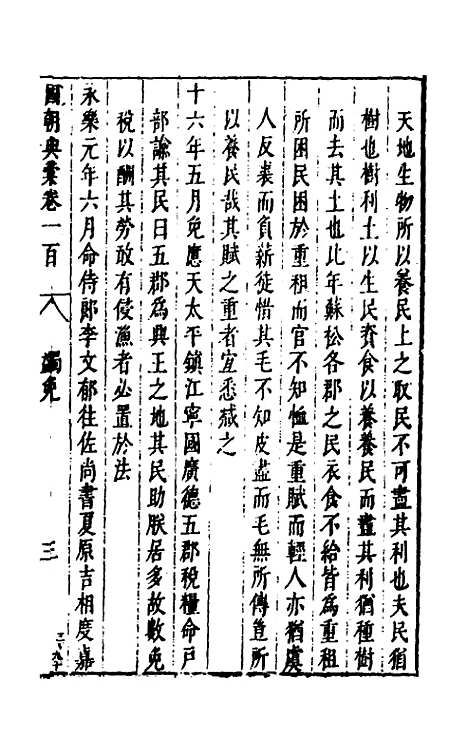 天地生物所以養民上之取民不可盡其利也夫民猶
樹也樹利土以生民資食以養養民而盡其利猶種樹
而去其土也比年蘇松各郡之民衣食不給皆為重租
所困民困於重租而官不知恤是重賦而輕人亦猶虞
人反裘而負薪徒惜其毛不知皮盡而毛無所傅豈所
以養民哉其賦之重者宜悉减之
十六年五月免應天太平鎮江寧國廣德五郡稅糧命戸
部諭其民曰五郡為興王之地其民助朕居多故數免
稅以酬其勞敢有侵漁者必置於法
永樂元年六月命侍郎李文郁往佐尚書夏原吉相度嘉
國朝典彙卷一百 八 蠲免 三